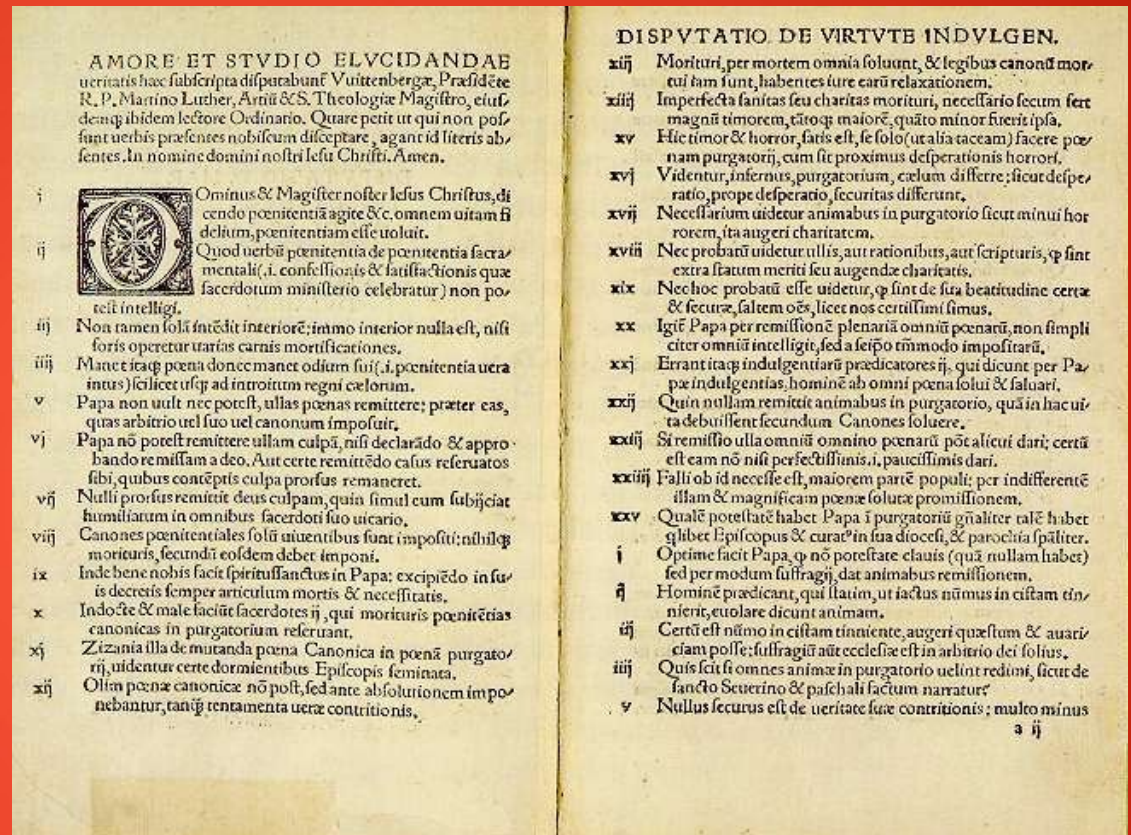 AMORE ET STVDIO ELVCIDANDAE
ueritatis hæc subscripta disputabunt̃ Vuittenbergæ, Præsidẽte
R. P. Martino Luther, Artiũ & S. Theologiæ Magistro, eius-
demq; ibidem lectore Ordinario. Quare petit ut qui non pos-
sunt uerbis præsentes nobiscum disceptare, agant id literis ab-
sentes. In nomine domini nostri Iesu Christi. Amen.
i DOminus & Magister noster Iesus Christus, di
cendo pœnitentiã agite &c. omnem uitam fi
delium, pœnitentiam esse uoluit.
ij Quod uerbũ pœnitentia de pœnitentia sacra-
mentali (.i. confessionis & satisfactionis quæ
sacerdotum ministerio celebratur) non po-
test intelligi.
iij Non tamen solã intẽdit interiorẽ; immo interior nulla est, nisi
foris operetur uarias carnis mortificationes.
iiij Manet itaq; pœna donec manet odium sui (.i. pœnitentia uera
intus) scilicet usq; ad introitum regni cælorum.
v Papa non uult nec potest, ullas pœnas remittere; præter eas,
quas arbitrio uel suo uel canonum imposuit.
vj Papa nõ potest remittere ullam culpã, nisi declarãdo & appro-
bando remissam a deo. Aut certe remittẽdo casus reseruatos
sibi, quibus contẽptis culpa prorsus remaneret.
vij Nulli prorsus remittit deus culpam, quin simul eum subijciat
humiliatum in omnibus sacerdoti suo uicario.
viij Canones pœnitentiales solũ uiuentibus sunt impositi; nihilq;
morituris, secundũ eosdem debet imponi.
ix Inde bene nobis facit spiritussanctus in Papa: excipiẽdo in su-
is decretis semper articulum mortis & necessitatis.
x Indocte & male faciũt sacerdotes ij, qui morituris pœnitẽtias
canonicas in purgatorium reseruant.
xj Zizania illa de mutanda pœna Canonica in pœnã purgato-
rij, uidentur certe dormientibus Episcopis seminata.
xij Olim pœnæ canonicæ nõ post, sed ante absolutionem impo-
nebantur, tanq̃ tentamenta ueræ contritionis.
DISPVTATIO DE VIRTVTE INDVLGEN.
xiij Morituri, per mortem omnia soluunt, & legibus canonũ mor-
tui iam sunt, habentes iure earũ relaxationem.
xiiij Imperfecta sanitas seu charitas morituri, necessario secum fert
magnũ timorem, tãtoq; maiorẽ, quãto minor fuerit ipsa.
xv Hic timor & horror, satis est, se solo (ut alia taceam) facere pœ-
nam purgatorij, cum sit proximus desperationis horrori.
xvj Videntur, infernus, purgatorium, cælum differre; sicut despe-
ratio, prope desperatio, securitas differunt.
xvij Necessarium uidetur animabus in purgatorio sicut minui hor
rorem, ita augeri charitatem.
xviij Nec probatũ uidetur ullis, aut rationibus, aut scripturis, ꝙ sint
extra statum meriti seu augendæ charitatis.
xix Nec hoc probatũ esse uidetur, ꝙ sint de sua beatitudine certæ
& securæ, saltem oẽs, licet nos certissimi simus.
xx Igit̃ Papa per remissionẽ plenariã omniũ pœnarũ, non simpli
citer omniũ intelligit, sed a seipo tm̃modo impositarũ.
xxj Errant itaq; indulgentiarũ prædicatores ij, qui dicunt per Pa-
pæ indulgentias, hominẽ ab omni pœna solui & saluari.
xxij Quin nullam remittit animabus in purgatorio, quã in hac ui-
ta debuissent secundum Canones soluere.
xxiij Si remissio ulla omniũ omnino pœnarũ põt alicui dari; certũ
est eam nõ nisi perfectissimis .i. paucissimis dari.
xxiiij Falli ob id necesse est, maiorem partẽ populi; per indifferentẽ
illam & magnificam pœnæ solutæ promissionem.
xxv Qualẽ potestatẽ habet Papa ĩ purgatoriũ gñaliter talẽ habet
q̃libet Episcopus & curatꝰ in sua diocesi, & parochia sp̃aliter.
i Optime facit Papa, ꝙ nõ potestate clauis (quã nullam habet)
sed per modum suffragij, dat animabus remissionem.
ij Hominẽ prædicant, qui statim, ut iactus nũmus in cistam tin-
nierit, euolare dicunt animam.
iij Certũ est nũmo in cistam tinniente, augeri quæstum & auari-
ciam posse; suffragiũ aũt ecclesiæ est in arbitrio dei solius.
iiij Quis scit si omnes animæ in purgatorio uelint redimi, sicut de
sancto Seuerino & paschali factum narratur?
v Nullus securus est de ueritate suæ contritionis; multo minus
a ij